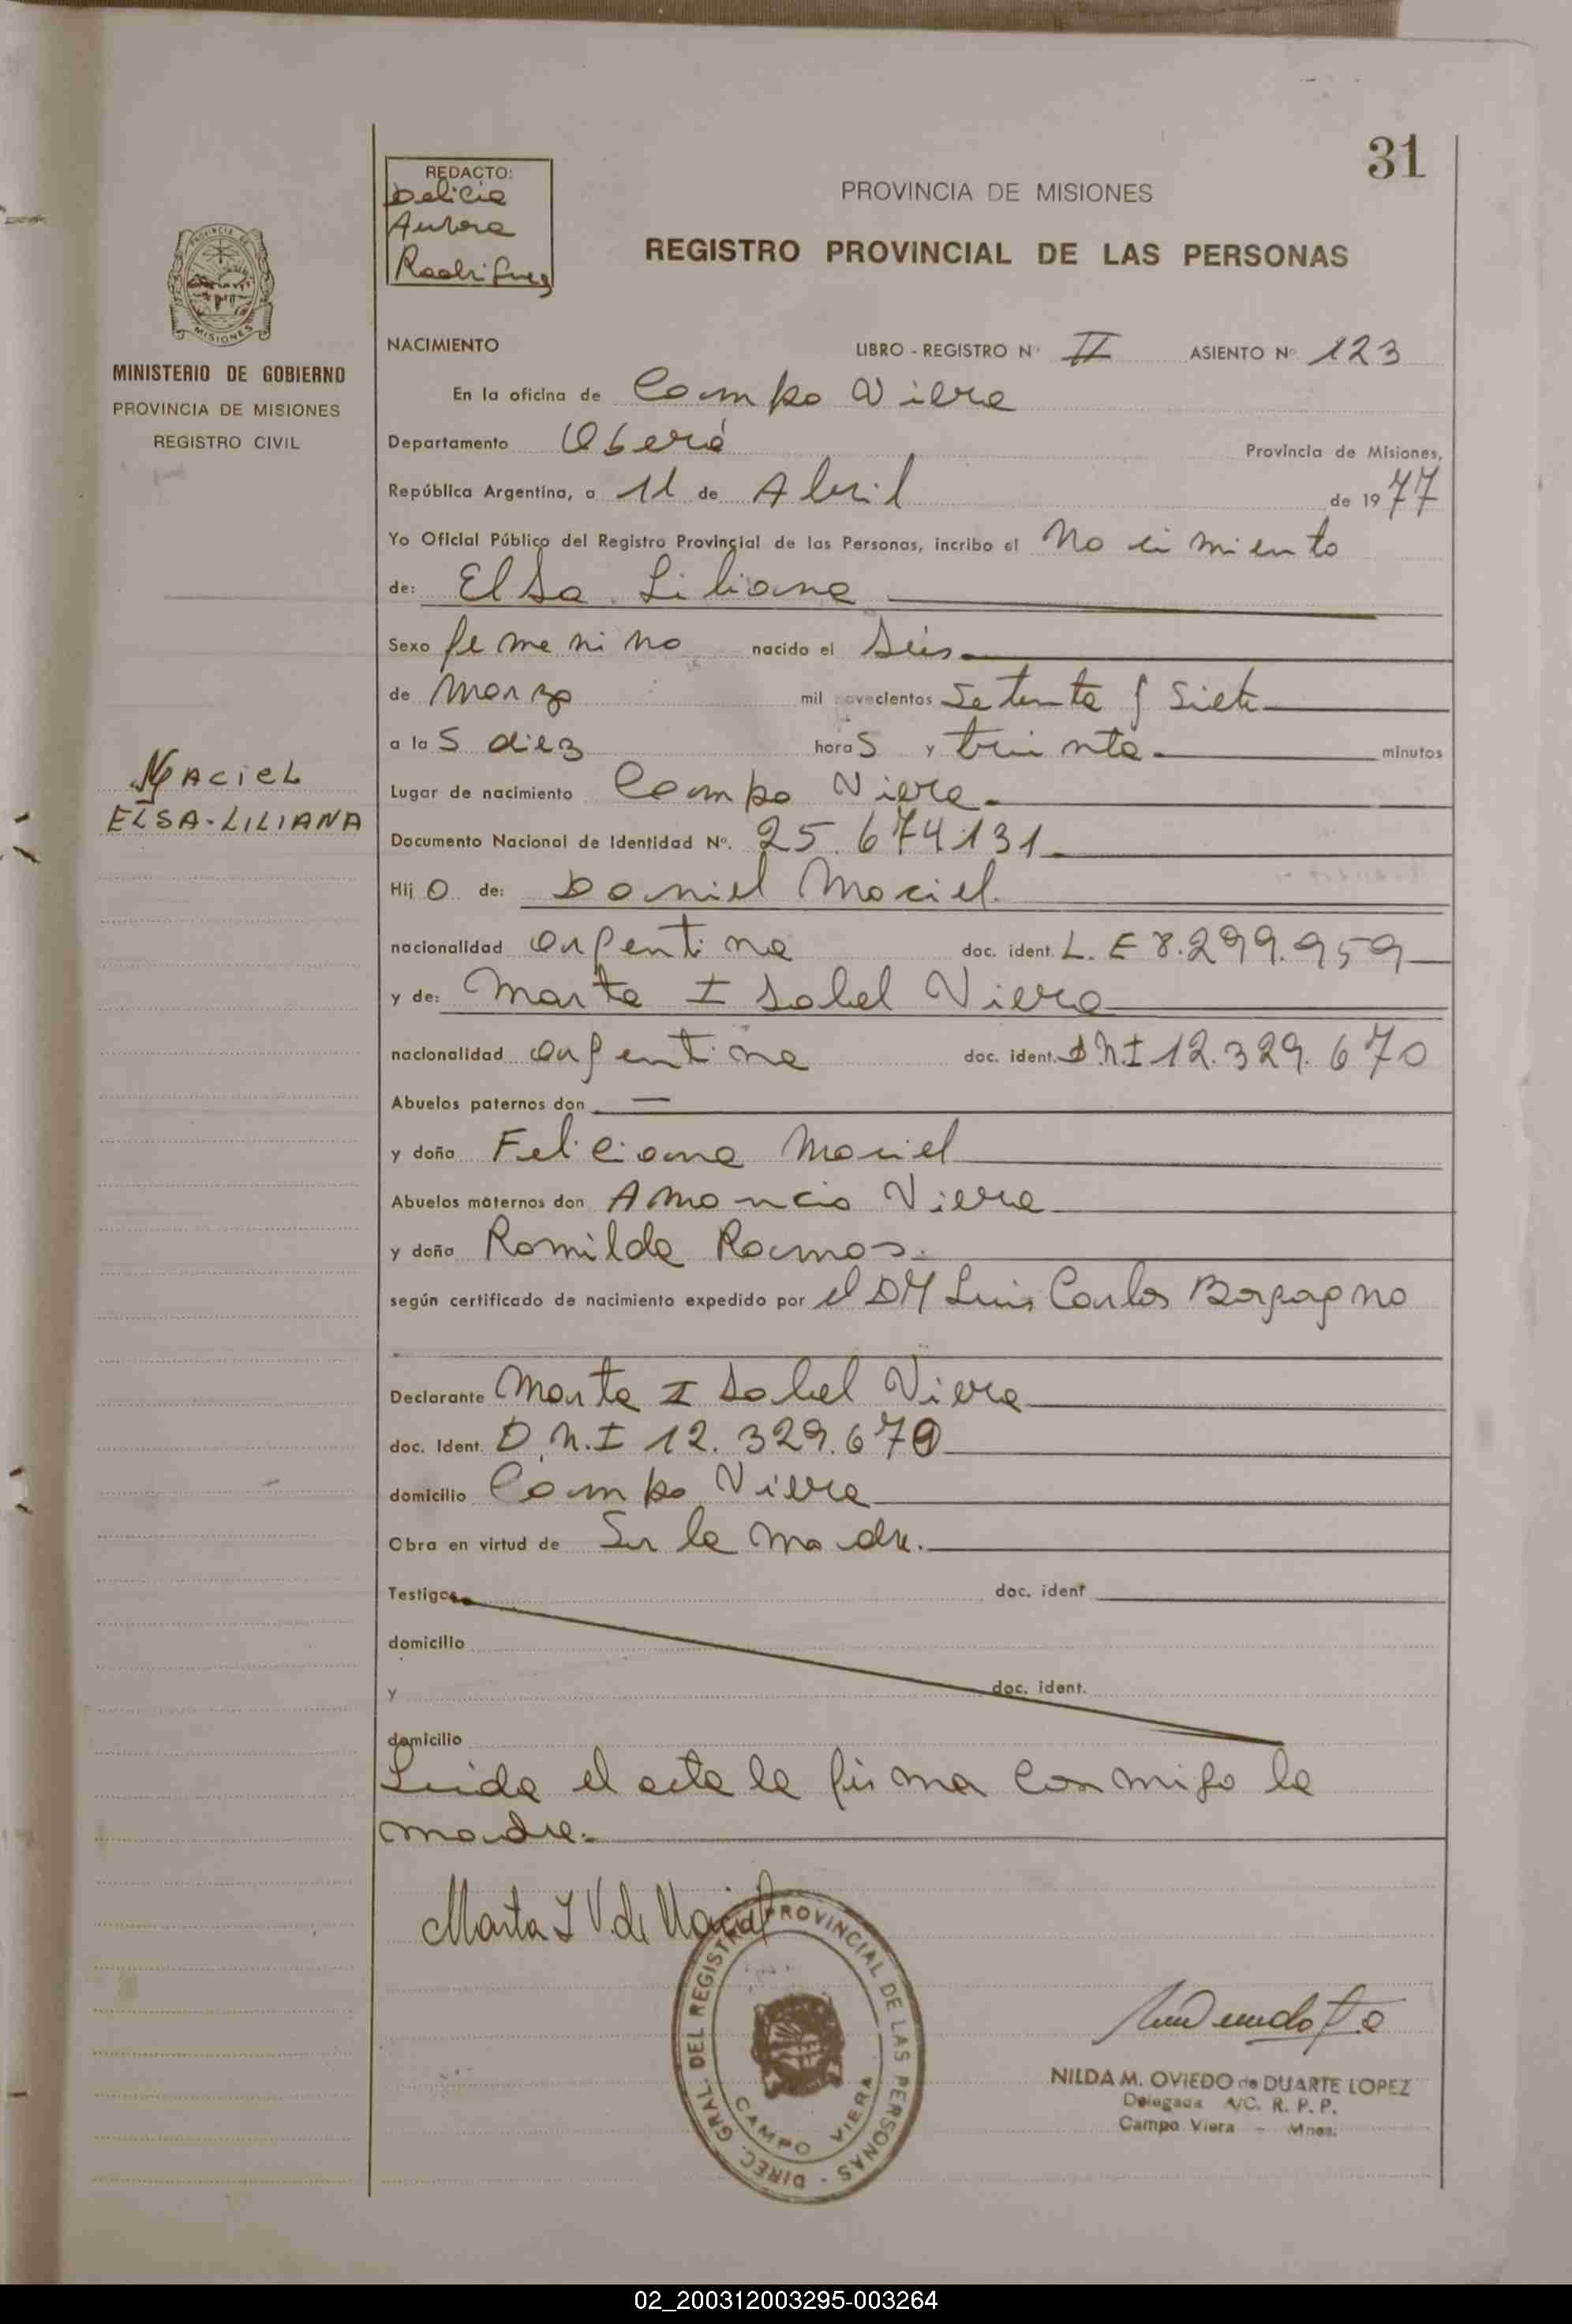 31
REDACTO:
Delicia
Aurora
Rodriguez
PROVINCIA DE MISIONES
REGISTRO PROVINCIAL DE LAS PERSONAS
MISIONES
MINISTERIO DE GOBIERNO
PROVINCIA DE MISIONES
REGISTRO CIVIL
NACIMIENTO LIBRO - REGISTRO Nº II ASIENTO Nº 123
En la oficina de Campo Viera
Departamento Oberá Provincia de Misiones,
República Argentina, a 11 de Abril de 1977
Yo Oficial Público del Registro Provincial de las Personas, incribo el Nacimiento
de: Elsa Liliana
Sexo femenino nacido el seis
de Marzo mil novecientos setenta y siete
a las diez horas y treinta minutos
MACIEL
ELSA-LILIANA
Lugar de nacimiento Campo Viera
Documento Nacional de Identidad Nº. 25.674.131
Hijo de: Daniel Maciel.
nacionalidad argentina doc. ident. L.E 8.299.959
y de: Marta Isabel Viera
nacionalidad argentina doc. ident. D.N.I 12.329.670
Abuelos paternos don —
y doña Feliciana Maciel
Abuelos maternos don Amancio Viera
y doña Romilda Ramos.
según certificado de nacimiento expedido por el DM Luis Carlos
Declarante Marta Isabel Viera
doc. Ident. D.N.I 12.329.670
domicilio Campo Viera
Obra en virtud de Ser la madre.
Testigos doc. ident
domicilio
y doc. ident.
domicilio
Leida el acta la firma conmigo la
madre.
Marta I V. de Maciel
DIREC. GRAL. DEL REGISTRO PROVINCIAL DE LAS PERSONAS
CAMPO VIERA
NILDA M. OVIEDO de DUARTE LOPEZ
Delegada A/C. R. P. P.
Campo Viera - Mnes.
02_200312003295-003264